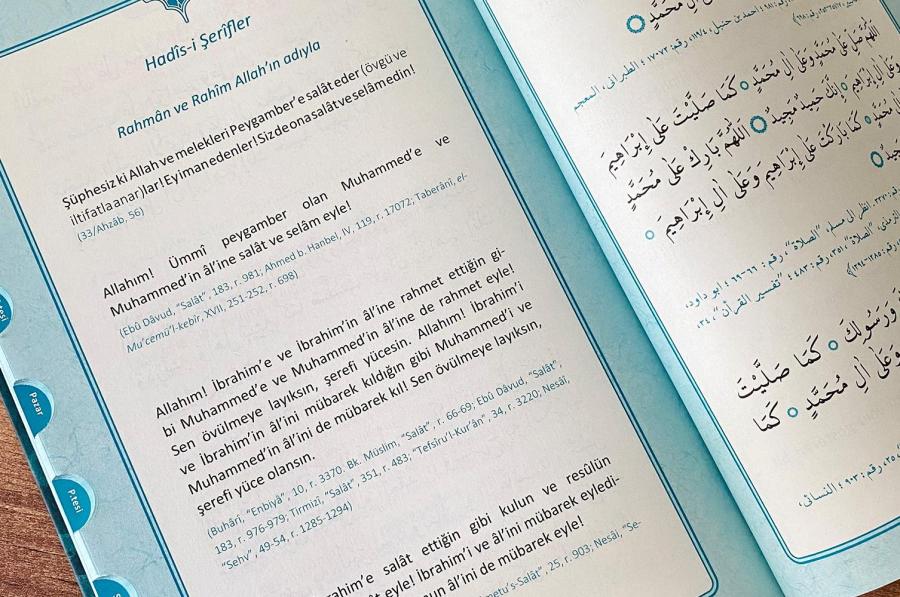 Hadîs-i Şerîfler
Rahmân ve Rahîm Allah'ın adıyla
Şüphesiz ki Allah ve melekleri Peygamber'e salât eder (övgü ve
iltifatla anar)lar! Ey iman edenler! Siz de ona salât ve selâm edin!
(33/Ahzâb, 56)
Allahım! Ümmî peygamber olan Muhammed'e ve
Muhammed'in âl'ine salât ve selâm eyle!
(Ebû Dâvud, "Salât", 183, r. 981; Ahmed b. Hanbel, IV, 119, r. 17072; Taberânî, el-
Mu'cemü'l-kebîr, XVII, 251-252, r. 698)
Allahım! İbrahim'e ve İbrahim'in âl'ine rahmet ettiğin gi-
bi Muhammed'e ve Muhammed'in âl'ine de rahmet eyle!
Sen övülmeye layıksın, şerefi yücesin. Allahım! İbrahim'i
ve İbrahim'in âl'ini mübarek kıldığın gibi Muhammed'i ve
Muhammed'in âl'ini de mübarek kıl! Sen övülmeye layıksın,
şerefi yüce olansın.
(Buhârî, "Enbiyâ", 10, r. 3370. Bk. Müslim, "Salât", r. 66-69; Ebû Dâvud, "Salât",
183, r. 976-979; Tirmizî, "Salât", 351, r. 483; "Tefsîru'l-Kur'ân", 34, r. 3220; Nesâî,
"Sehv", 49-54, r. 1285-1294)
rahim'e salât ettiğin gibi kulun ve resûlün
eyle! İbrahim'i ve âl'ini mübarek eyledi-
un âl'ini de mübarek eyle!
metu's-Salât", 25, r. 903; Nesâî, "Se-
Pazar
P.tesi
اللَّهُمَّ صَلِّ عَلَى مُحَمَّدٍ وَعَلَى آلِ مُحَمَّدٍ كَمَا صَلَّيْتَ عَلَى إِبْرَاهِيمَ
وَعَلَى آلِ إِبْرَاهِيمَ إِنَّكَ حَمِيدٌ مَجِيدٌ اللَّهُمَّ بَارِكْ عَلَى مُحَمَّدٍ
كَمَا بَارَكْتَ عَلَى إِبْرَاهِيمَ وَعَلَى آلِ إِبْرَاهِيمَ
وَرَسُولِكَ كَمَا صَلَّيْتَ
وَعَلَى آلِ مُحَمَّدٍ كَمَا